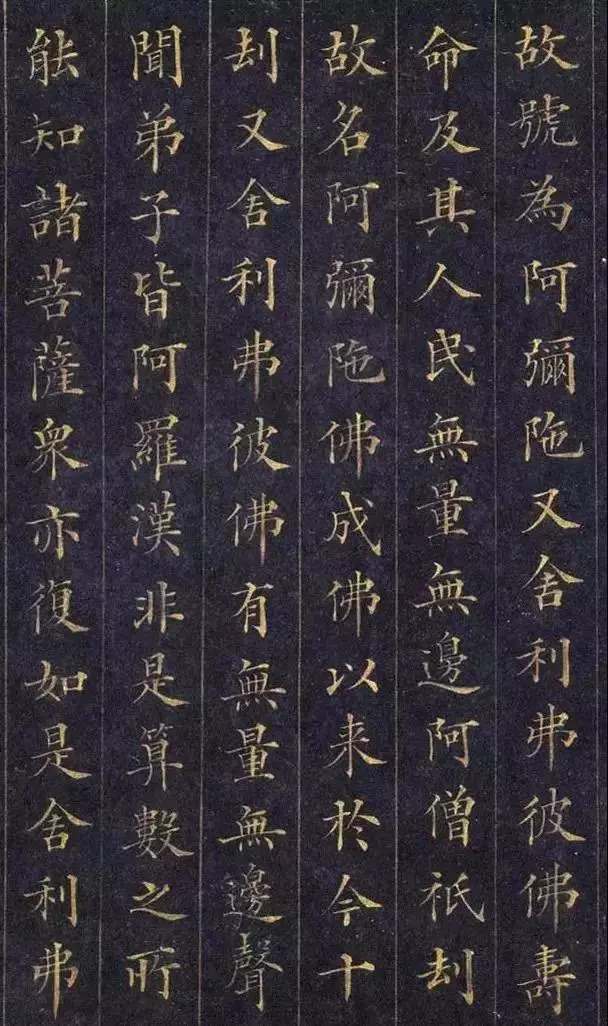 故號為阿彌陁又舍利弗彼佛壽
命及其人民無量無邊阿僧祇刧
故名阿彌陁佛成佛以来於今十
刧又舍利弗彼佛有無量無邊聲
聞弟子皆阿羅漢非是算數之所
能知諸菩薩衆亦復如是舍利弗